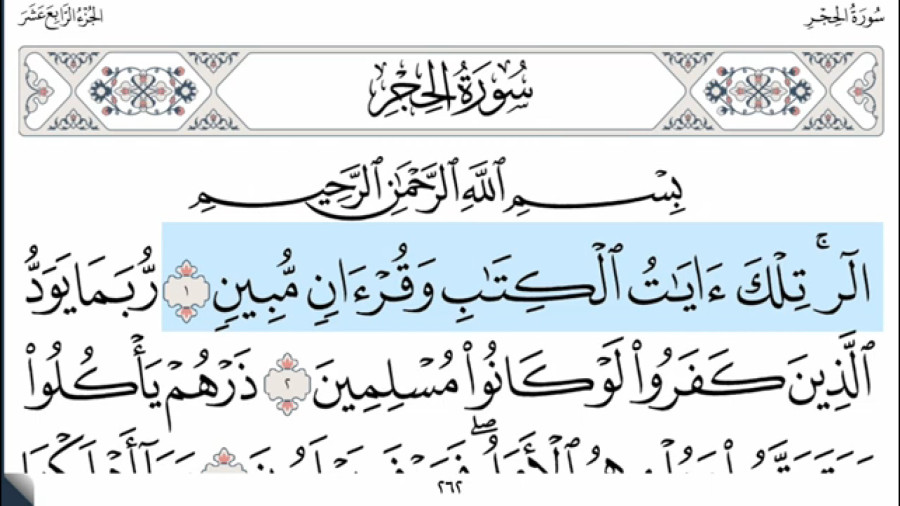 سُورَةُ الحِجْرِ
الجُزْءُ الرَّابِعَ عَشَرَ
سُورَةُ الحِجْرِ
بِسْمِ ٱللَّهِ ٱلرَّحْمَٰنِ ٱلرَّحِيمِ
الٓرۚ تِلْكَ ءَايَٰتُ ٱلْكِتَٰبِ وَقُرْءَانٍ مُّبِينٍ ١ رُّبَمَا يَوَدُّ
ٱلَّذِينَ كَفَرُوا۟ لَوْ كَانُوا۟ مُسْلِمِينَ ٢ ذَرْهُمْ يَأْكُلُوا۟
٢٦٢